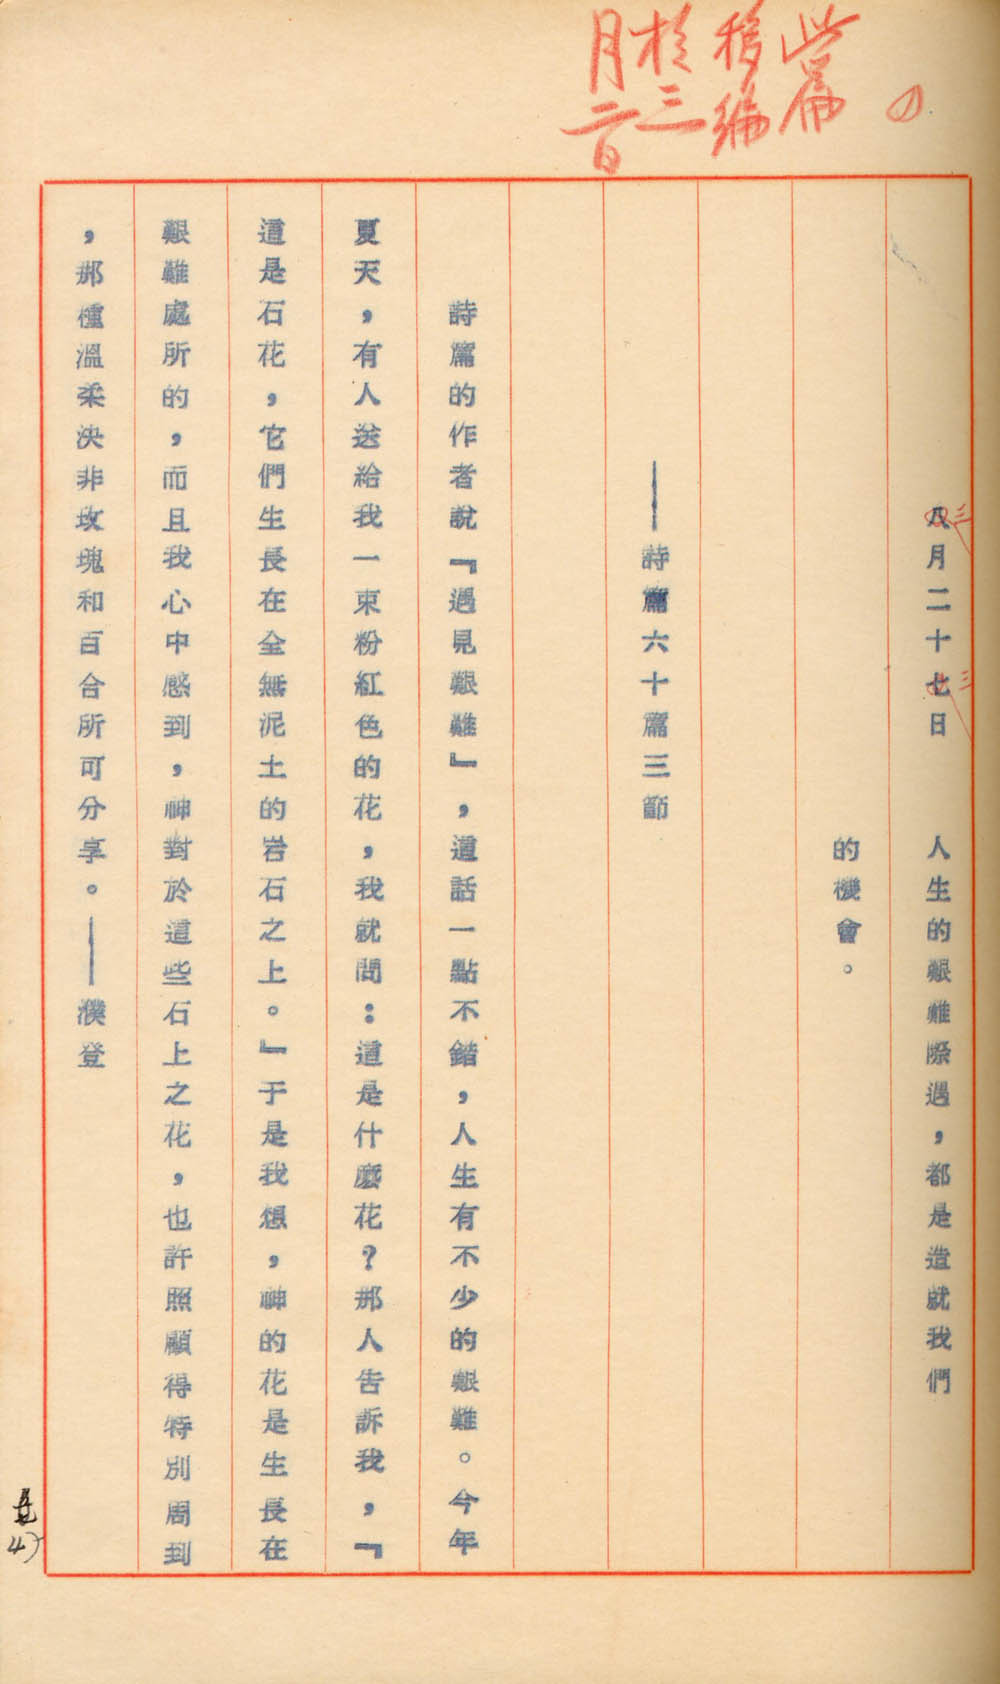 此篇
移編
於三
月二日
八月二十七日　人生的艱難際遇，都是造就我們
三
三
的機會。
——詩篇六十篇三節
詩篇的作者說『遇見艱難』，這話一點不錯，人生有不少的艱難。今年
夏天，有人送給我一束粉紅色的花，我就問：這是什麼花？那人告訴我，『
這是石花，它們生長在全無泥土的岩石之上。』于是我想，神的花是生長在
艱難處所的，而且我心中感到，神對於這些石上之花，也許照顧得特別周到
，那種溫柔決非玫瑰和百合所可分享。——濮登